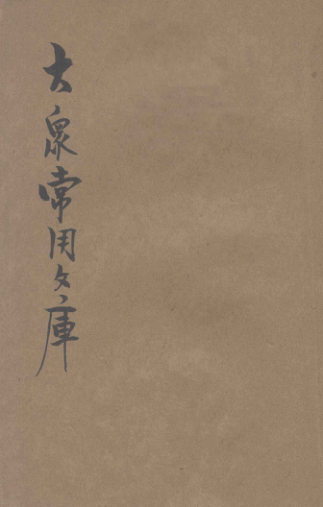 大眾常用文庫